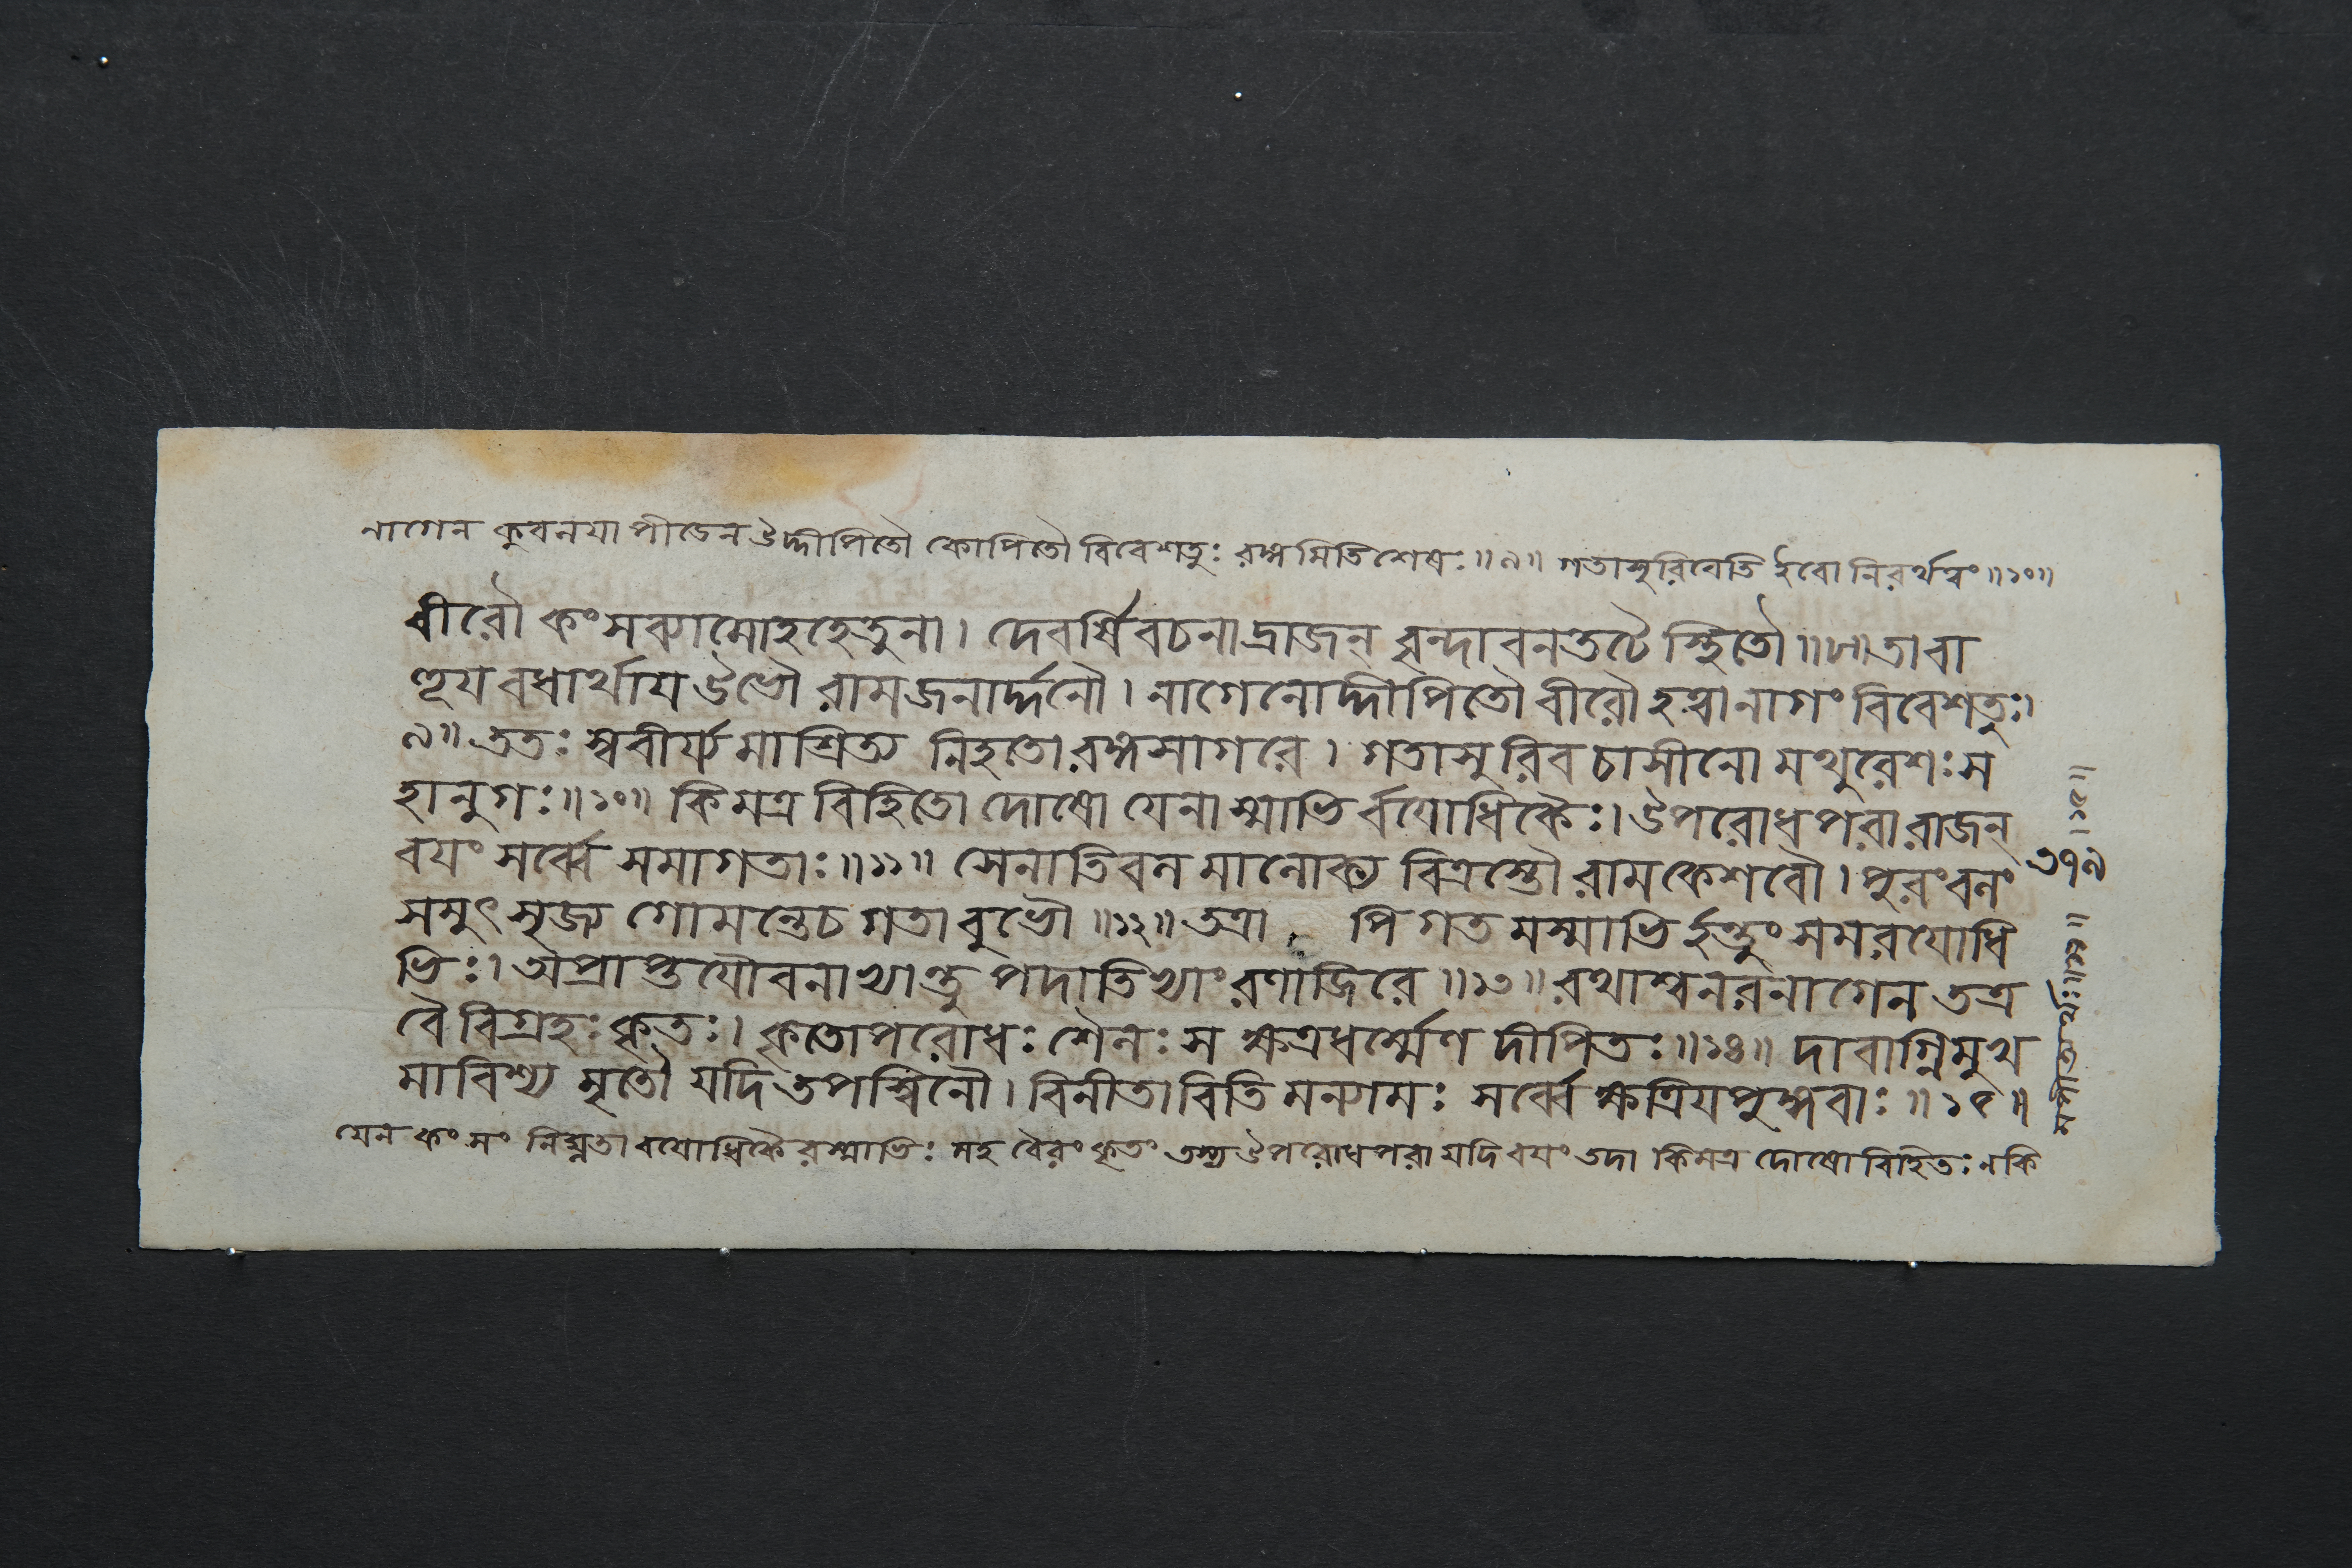 নাগেন কুবলযাপীডেন উদ্দীপিতৌ কোপিতৌ বিবেশতুঃ রঙ্গমিতিশেষঃ॥৯॥ গতাসুরিবেতি ইবো নিরর্থকং॥১০॥
বীরৌ কংসব্যামোহহেতুনা। দেবর্ষিবচনাদ্রাজন্ বৃন্দাবনতটে স্থিতৌ॥৮॥তাবা
হূয বধার্থায উভৌ রামজনার্দ্দনৌ। নাগেনোদ্দীপিতৌ বীরৌ হত্বা নাগং বিবেশতুঃ।
৯॥ ততঃ স্ববীর্য্যমাশ্রিত্য নিহতো রঙ্গসাগরে। গতাসুরিবচাসীনো মথুরেশঃ স
হানুগঃ॥১০॥ কিমত্র বিহিতো দোষো যেনাস্মাভির্বযোধিকৈঃ। উপরোধপরা রাজন্
বযং সর্ব্বে সমাগতাঃ॥১১॥ সেনাতিবলমালোক্য বিত্রস্তৌ রামকেশবৌ। পুরং বলং
সমুৎসৃজ্য গোমন্তেচ গতাবুভৌ॥১২॥ তত্রা পি গতমস্মাভির্হন্তুং সমরযোধি
ভিঃ। অপ্রাপ্তযৌবনাভ্যান্তু পদাতিভ্যাং রণাজিরে॥১৩॥ রথাশ্বনরনাগেন তত্র
বৈ বিগ্রহঃ কৃতঃ। কৃতোপরোধঃ শৈলঃ স ক্ষত্রধর্ম্মেণ দীপিতঃ॥১৪॥ দাবাগ্নিমুখ
মাবিশ্য মৃতৌ যদি তপস্বিনৌ। বিনীতাবিতি মন্যামঃ সর্ব্বে ক্ষত্রিযপুঙ্গবাঃ॥১৫॥
যেন কংসং নিঘ্নতা বযোধিকৈরস্মাভিঃ সহ বৈরং কৃতং তস্য উপরোধপরা যদি বযং তদা কিমত্র দোষো বিহিতঃ ন কি
৩৭৯